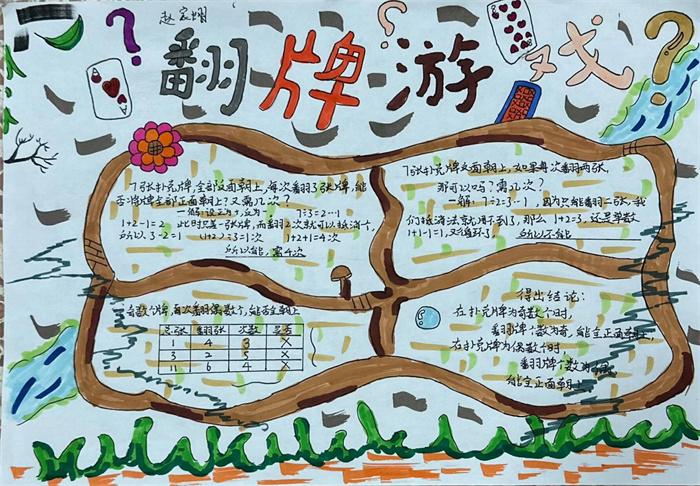 赵
翻牌游戏
7张扑克牌,全部反面朝上,每次翻3张牌,能
否将牌全部正面朝上?又需几次?
一解:设正为+,反为- 7÷3=2…1
1+2-1=2 此时只差一张牌,而翻2次就可以抵消1个,
所以3-2=1 (1+2)÷3=1次 1+2+1=4次
所以能,需4次
7张扑克牌反面朝上,如果每次翻两张,
那可以吗?需几次?
一解:7÷2=3…1,因为只能翻二张,我
们抵消法就用不到了,那么1+2=3,还是单数
1+1-1=1,又循环了 所以不能
奇数个牌,每次翻偶数个,能否全朝上
总张 翻张 次数 是否
1 4 3 X
3 2 5 X
11 6 4 X
得出结论:
在扑克牌为奇数个时,
翻牌个数为奇,能全正面朝上,
在扑克牌为偶数个时,
翻牌个数为
能全正面朝上